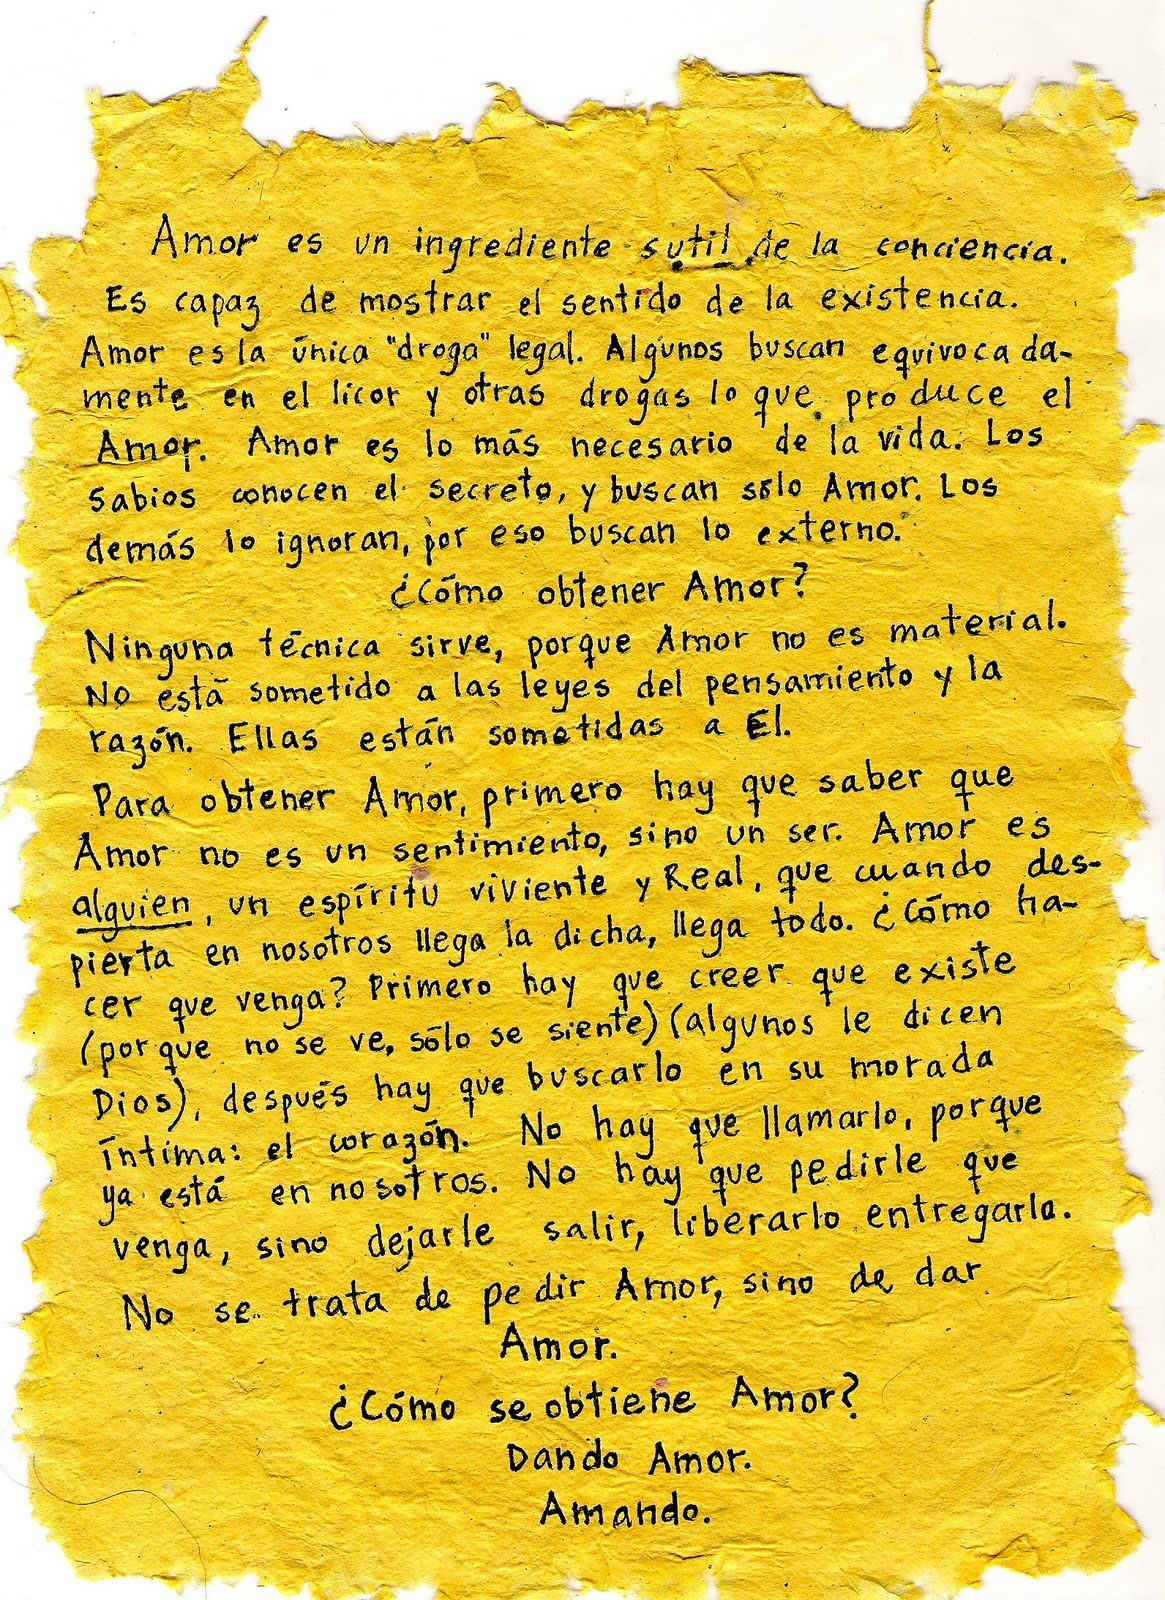 Amor es un ingrediente sutil de la conciencia.
Es capaz de mostrar el sentido de la existencia.
Amor es la única "droga" legal. Algunos buscan equivocada-
mente en el licor y otras drogas lo que produce el
Amor. Amor es lo más necesario de la vida. Los
sabios conocen el secreto, y buscan sólo Amor. Los
demás lo ignoran, por eso buscan lo externo.
¿Cómo obtener Amor?
Ninguna técnica sirve, porque Amor no es material.
No está sometido a las leyes del pensamiento y la
razón. Ellas están sometidas a El.
Para obtener Amor, primero hay que saber que
Amor no es un sentimiento, sino un ser. Amor es
alguien, un espíritu viviente y Real, que cuando des-
pierta en nosotros llega la dicha, llega todo. ¿Cómo ha-
cer que venga? Primero hay que creer que existe
(porque no se ve, sólo se siente) (algunos le dicen
Dios), después hay que buscarlo en su morada
íntima: el corazón. No hay que llamarlo, porque
ya está en nosotros. No hay que pedirle que
venga, sino dejarle salir, liberarlo entregarlo.
No se trata de pedir Amor, sino de dar
Amor.
¿Cómo se obtiene Amor?
Dando Amor.
Amando.